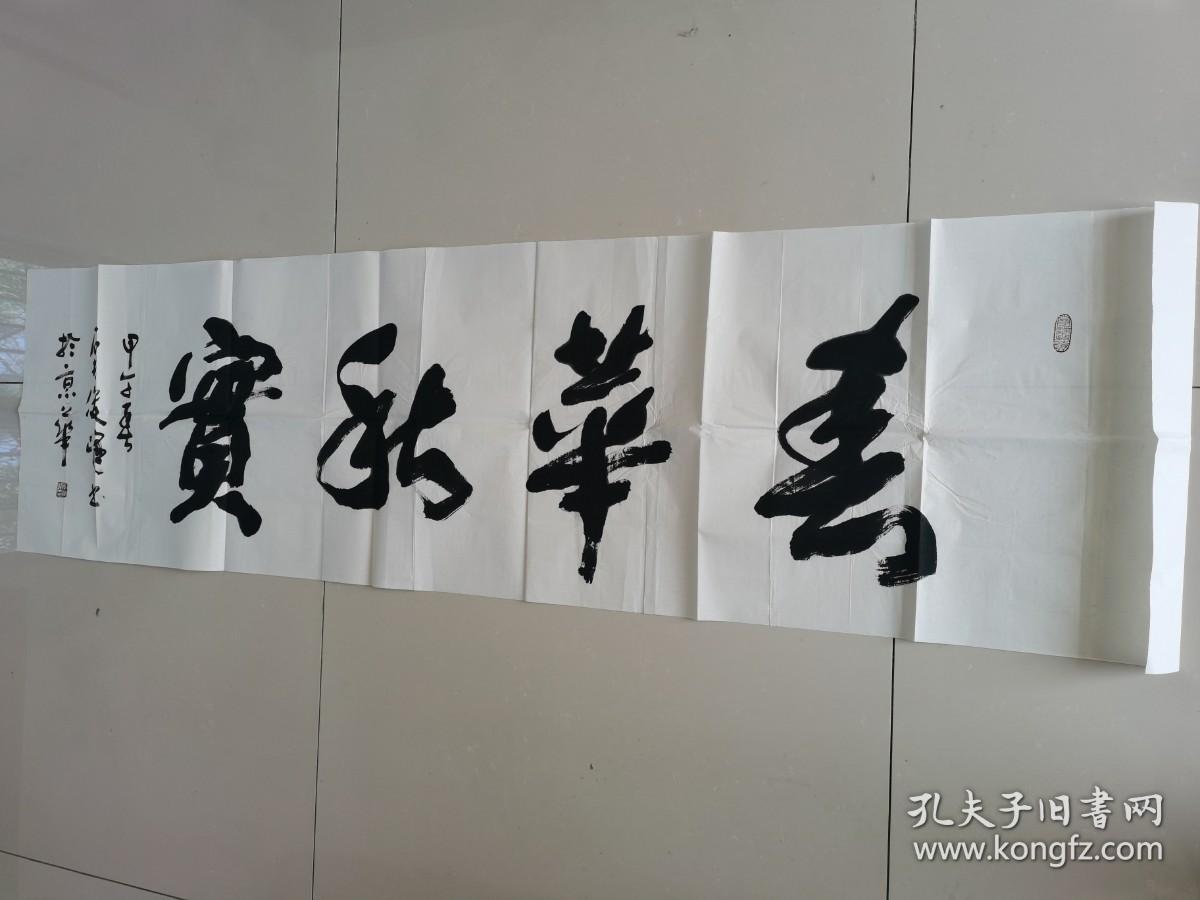 春華秋實
甲午春
書
於京華
孔夫子旧書网
www.kongfz.com